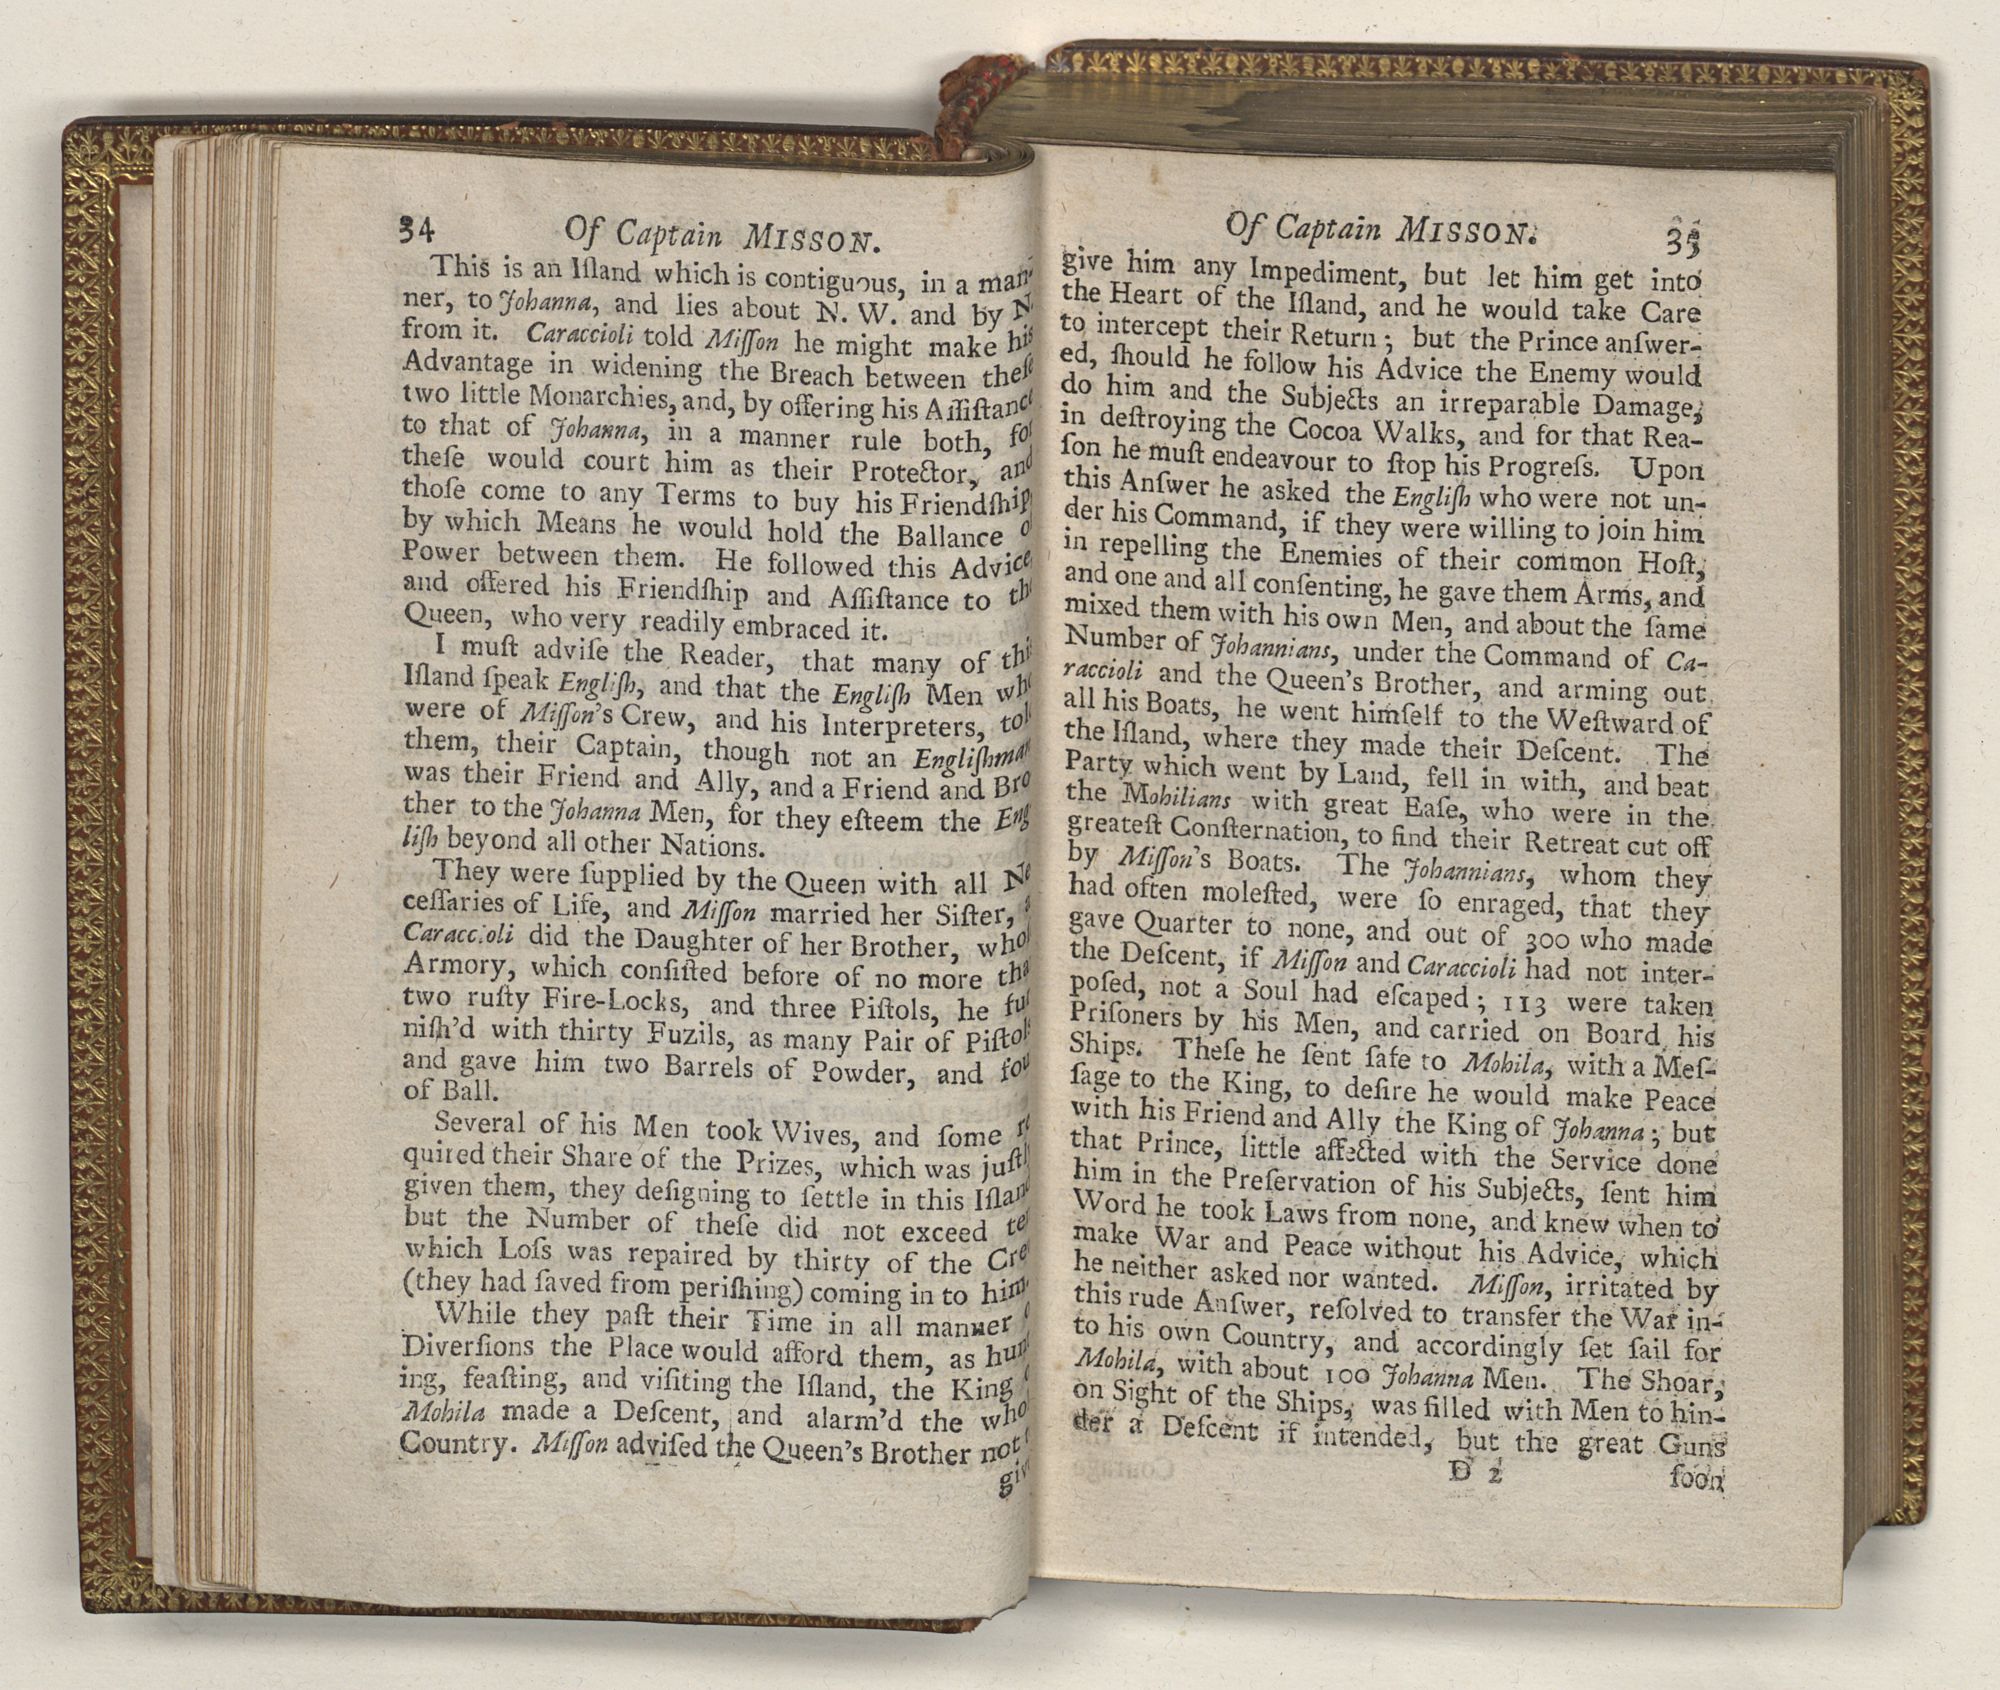 34 Of Captain MISSON.
This is an Iſland which is contiguous, in a man-
ner, to Johanna, and lies about N. W. and by N.
from it. Caraccioli told Miſſon he might make his
Advantage in widening the Breach between theſe
two little Monarchies, and, by offering his Aſſiſtance
to that of Johanna, in a manner rule both, for
theſe would court him as their Protector, and
thoſe come to any Terms to buy his Friendſhip,
by which Means he would hold the Ballance o
Power between them. He followed this Advice,
and offered his Friendſhip and Aſſiſtance to the
Queen, who very readily embraced it.
I muſt adviſe the Reader, that many of this
Iſland ſpeak Engliſh, and that the Engliſh Men who
were of Miſſon's Crew, and his Interpreters, tol
them, their Captain, though not an Engliſhman
was their Friend and Ally, and a Friend and Bro
ther to the Johanna Men, for they eſteem the Eng
liſh beyond all other Nations.
They were ſupplied by the Queen with all Ne
ceſſaries of Life, and Miſſon married her Siſter, a
Caraccioli did the Daughter of her Brother, whoſ
Armory, which conſiſted before of no more tha
two ruſty Fire-Locks, and three Piſtols, he fur
niſh'd with thirty Fuzils, as many Pair of Piſtols
and gave him two Barrels of Powder, and fou
of Ball.
Several of his Men took Wives, and ſome re
quired their Share of the Prizes, which was juſtly
given them, they deſigning to ſettle in this Iſland
but the Number of theſe did not exceed te
which Loſs was repaired by thirty of the Cre
(they had ſaved from periſhing) coming in to him.
While they paſt their Time in all manner o
Diverſions the Place would afford them, as hunt
ing, feaſting, and viſiting the Iſland, the King o
Mohila made a Deſcent, and alarm'd the who
Country. Miſſon adviſed the Queen's Brother not t
giv
Of Captain MISSON. 35
give him any Impediment, but let him get into
the Heart of the Iſland, and he would take Care
to intercept their Return; but the Prince anſwer-
ed, ſhould he follow his Advice the Enemy would
do him and the Subjects an irreparable Damage,
in deſtroying the Cocoa Walks, and for that Rea-
ſon he muſt endeavour to ſtop his Progreſs. Upon
this Anſwer he asked the Engliſh who were not un-
der his Command, if they were willing to join him
in repelling the Enemies of their common Hoſt,
and one and all conſenting, he gave them Arms, and
mixed them with his own Men, and about the ſame
Number of Johannians, under the Command of Ca-
raccioli and the Queen's Brother, and arming out
all his Boats, he went himſelf to the Weſtward of
the Iſland, where they made their Deſcent. The
Party which went by Land, fell in with, and beat
the Mohilians with great Eaſe, who were in the
greateſt Conſternation, to find their Retreat cut off
by Miſſon's Boats. The Johannians, whom they
had often moleſted, were ſo enraged, that they
gave Quarter to none, and out of 300 who made
the Deſcent, if Miſſon and Caraccioli had not inter-
poſed, not a Soul had eſcaped; 113 were taken
Priſoners by his Men, and carried on Board his
Ships. Theſe he ſent ſafe to Mohila, with a Meſ-
ſage to the King, to deſire he would make Peace
with his Friend and Ally the King of Johanna; but
that Prince, little affected with the Service done
him in the Preſervation of his Subjects, ſent him
Word he took Laws from none, and knew when to
make War and Peace without his Advice, which
he neither asked nor wanted. Miſſon, irritated by
this rude Anſwer, reſolved to transfer the War in-
to his own Country, and accordingly ſet ſail for
Mohila, with about 100 Johanna Men. The Shoar,
on Sight of the Ships, was filled with Men to hin-
der a Deſcent if intended, but the great Guns
D 2 ſoon